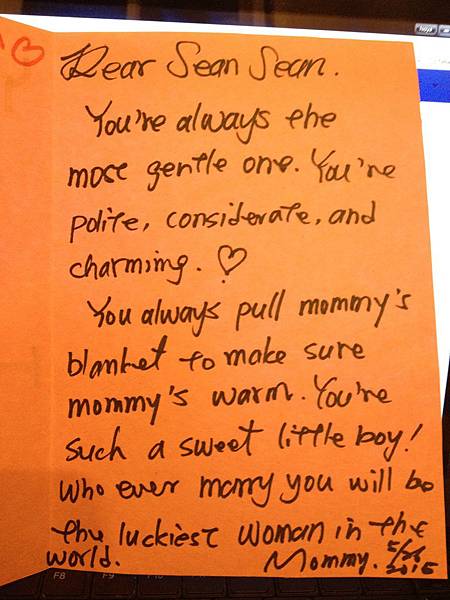 Dear Sean Sean.
You're always the
most gentle one. You're
polite, considerate, and
charming. ♡
You always pull mommy's
blanket to make sure
mommy's warm. You're
such a sweet little boy!
Who ever marry you will be
the luckiest woman in the
world.
Mommy. 5/26
2015
F8